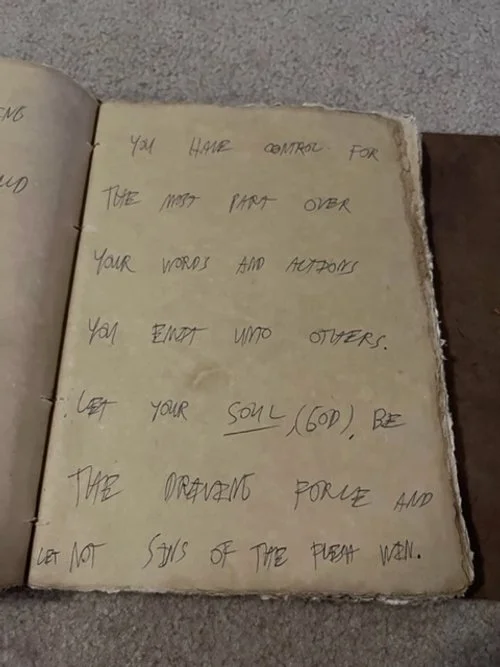 YOU HAVE CONTROL FOR
THE MOST PART OVER
YOUR WORDS AND ACTIONS
YOU EMIT UNTO OTHERS.
LET YOUR SOUL, (GOD), BE
THE DRIVING FORCE AND
LET NOT SINS OF THE FLESH WIN.